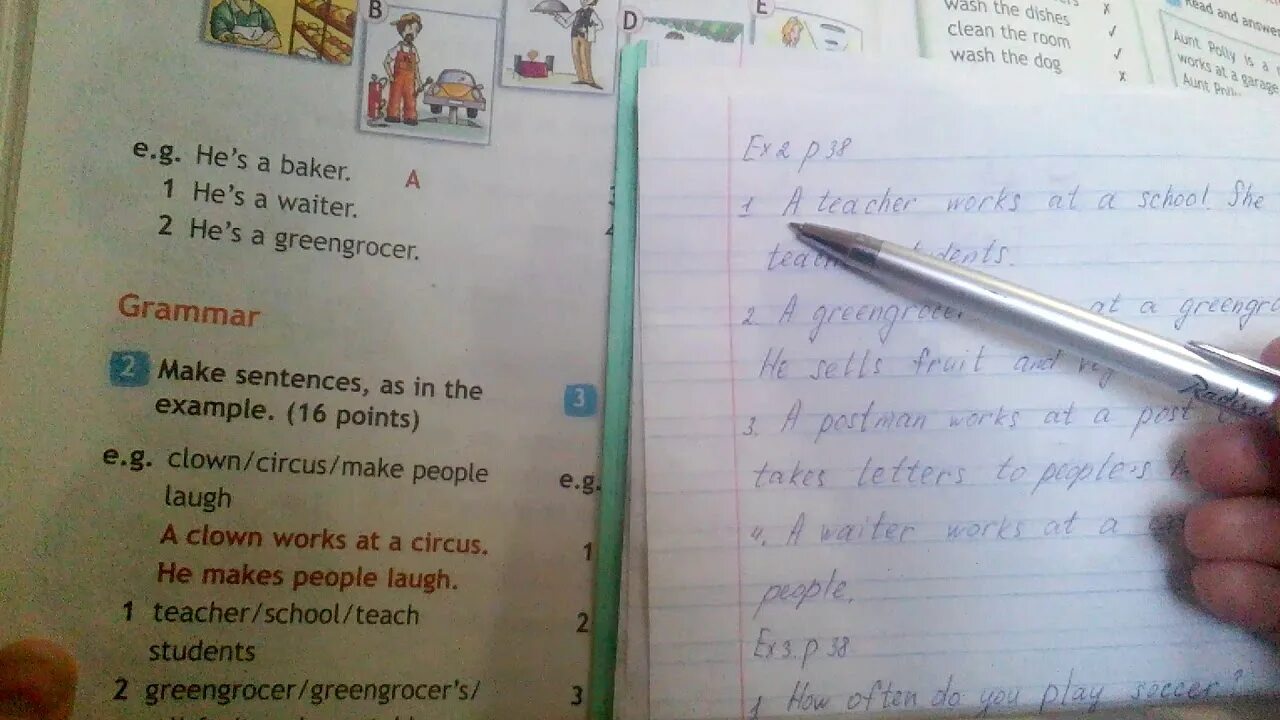 B
D
E
e.g. He's a baker. A
1 He's a waiter.
2 He's a greengrocer.
Grammar
2 Make sentences, as in the
example. (16 points)
e.g. clown/circus/make people
laugh
A clown works at a circus.
He makes people laugh.
1 teacher/school/teach
students
2 greengrocer/greengrocer's/
3
e.g.
1
2
3
wash the dishes
clean the room
wash the dog
Read and answer
Aunt Polly is a
works at a garage
Aunt
Ex 2 p 38
1 A teacher works at a school. She
2. A at a
He sells fruit and
3. A postman works at a post
takes letters to people's
4. A waiter works at a
people.
Ex 3. p 38
1 How often do you play soccer?